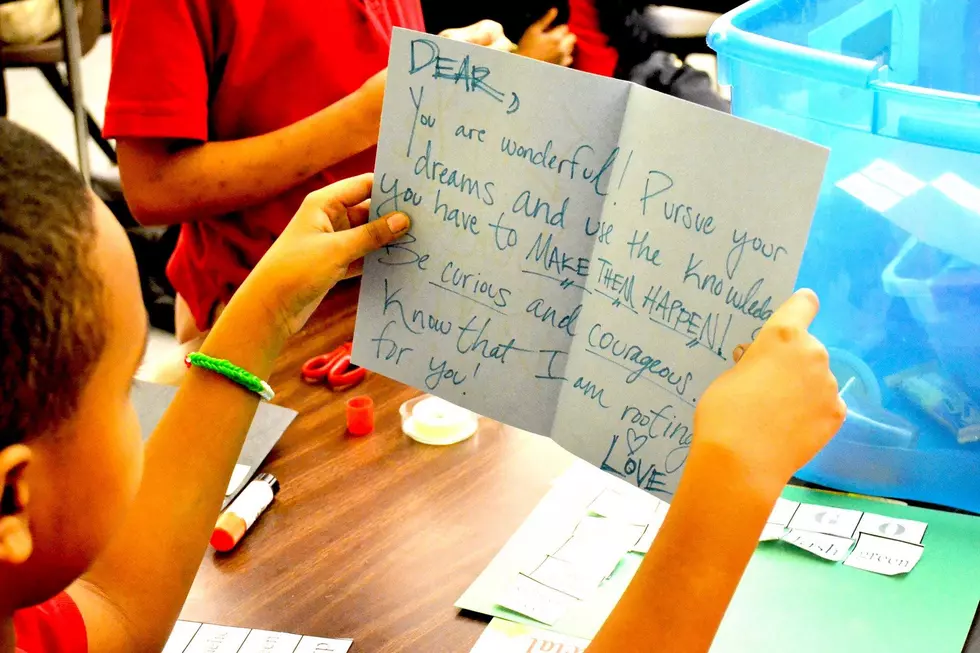 DEAR,
You are wonderful! Pursue your
dreams and use the knowledge
you have to MAKE THEM HAPPEN!
Be curious and courageous.
Know that I am rooting
for you!
♡
LOVE
G O
green